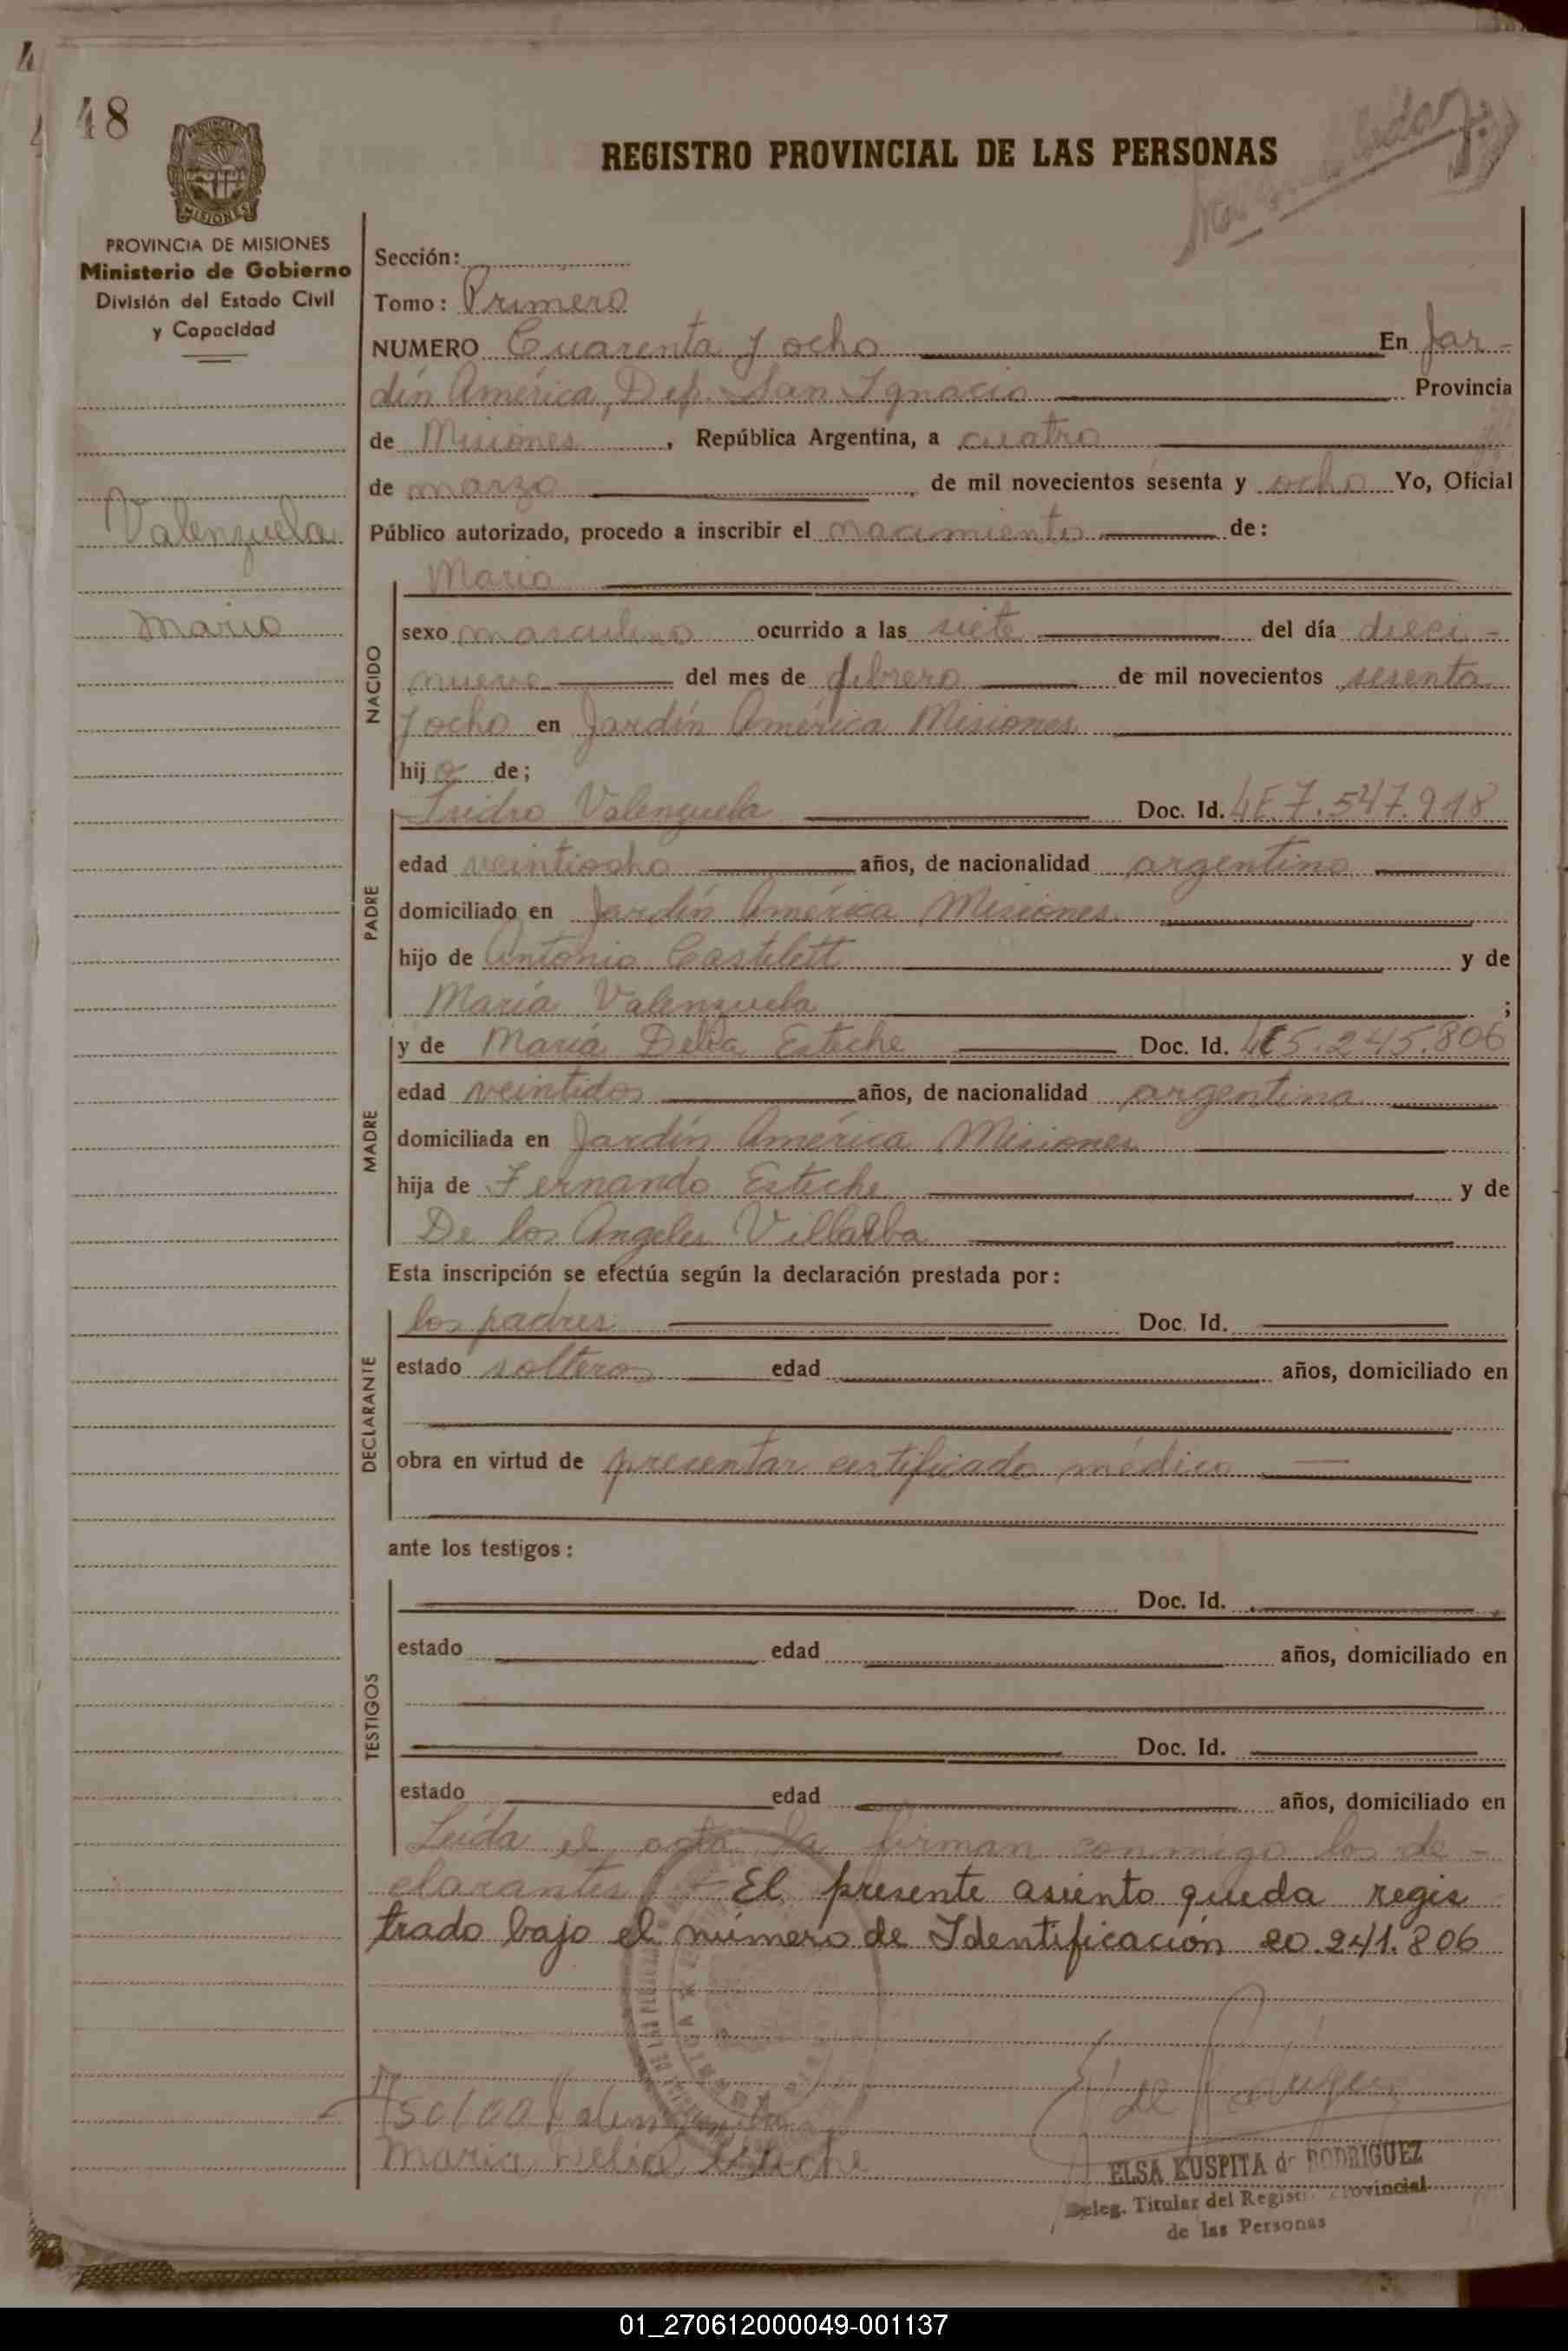 48
REGISTRO PROVINCIAL DE LAS PERSONAS
MISIONES
PROVINCIA DE MISIONES
Ministerio de Gobierno
División del Estado Civil
y Capacidad
Sección:
Tomo: Primero
NUMERO Cuarenta y ocho En Jar-
dín América, Dep. San Ignacio Provincia
de Misiones, República Argentina, a cuatro
de marzo de mil novecientos sesenta y ocho Yo, Oficial
Valenzuela
Público autorizado, procedo a inscribir el nacimiento de:
Mario
Mario
NACIDO
sexo masculino ocurrido a las siete del día dieci-
nueve del mes de febrero de mil novecientos sesenta
y ocho en Jardín América Misiones
hijo de;
PADRE
Isidro Valenzuela Doc. Id. LE 7.547.918
edad veintiocho años, de nacionalidad argentino
domiciliado en Jardín América Misiones
hijo de Antonio Castelett y de
María Valenzuela ;
MADRE
y de María Delia Esteche Doc. Id. 5.245.806
edad veintidos años, de nacionalidad argentina
domiciliada en Jardín América Misiones
hija de Fernando Esteche y de
De los Angeles Villalba
Esta inscripción se efectúa según la declaración prestada por:
DECLARANTE
los padres Doc. Id.
estado solteros edad años, domiciliado en
obra en virtud de presentar certificado médico
ante los testigos:
TESTIGOS
Doc. Id.
estado edad años, domiciliado en
Doc. Id.
estado edad años, domiciliado en
Leída el acta la firman conmigo los de-
clarantes El presente asiento queda regis
trado bajo el número de Identificación 20.241.806
Valenzuela
Maria Delia Esteche
ELSA KUSPITA de RODRIGUEZ
Deleg. Titular del Registro Provincial
de las Personas
01_270612000049-001137